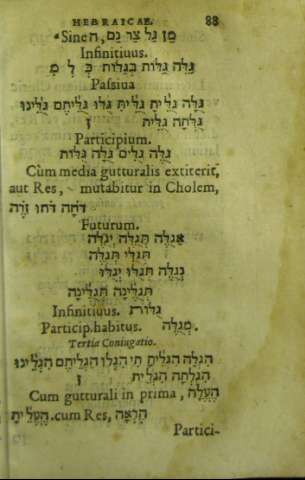 HEBRAICAE. 88
מִן גַל צַר נַם, Sine ח
Infinitiuus.
גַּלֵּה גַּלּוֹת בְּגַלּוֹת כְּ לְ מִ
Passiua
גֻּלָּה גֻּלֵּיתָ גֻּלֵּית גֻּלּוּ גֻּלֵּיתֶם גֻּלֵּינוּ
גֻּלְּתָה גֻּלֵּית ן
Participium.
גֻּלֶּה גֻּלִּים גֻּלָּה גֻּלּוֹת
Cùm media gutturalis extiterit,
aut Res, mutabitur in Cholem,
דֹּחָה דֹּחוּ זֹרֶה
Futurum.
אֲגֻלֶּה תְּגֻלֶּה יְגֻלֶּה
תְּגֻלִּי תְּגֻלֶּה
נְגֻלֶּה תְּגֻלּוּ יְגֻלּוּ
תְּגֻלֶּינָה תְּגֻלֶּינָה
Infinitiuus. גֻּלּוֹת
Particip. habitus. מְגֻלֶּה.
Tertia Coniugatio.
הִגְלָה הִגְלֵיתָ תִי הִגְלוּ הִגְלֵיתֶם הִגְלֵינוּ
הִגְלְתָה הִגְלֵית ן
Cum gutturali in prima, הֶעֱלָה
הֶעֱלֵיתָ .cum Res, הֶרְאָה
Partici-